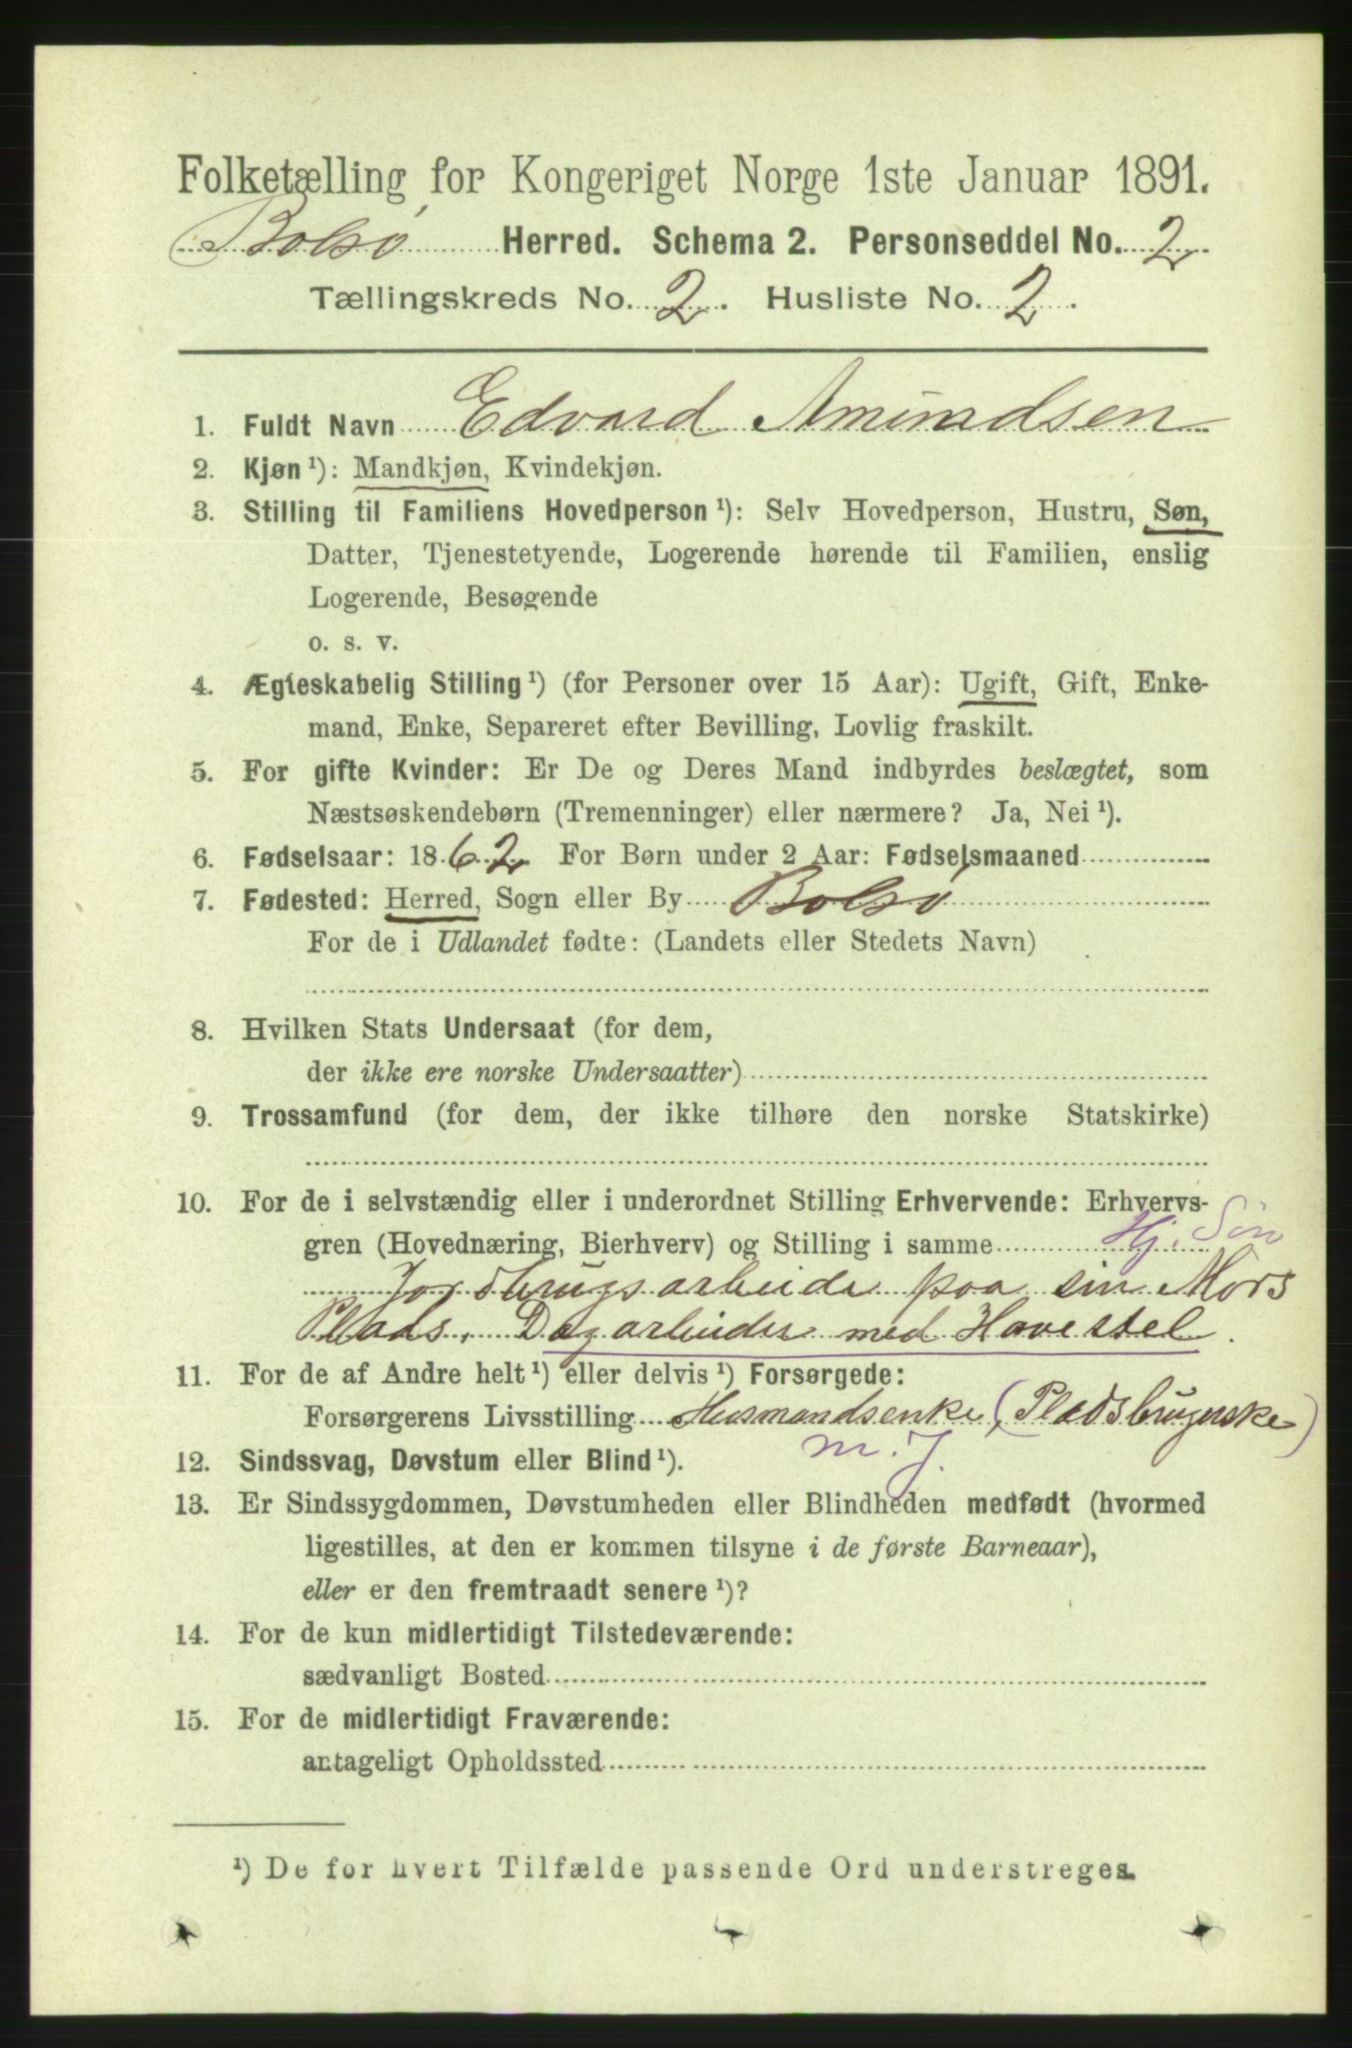 Folketælling for Kongeriget Norge 1ste Januar 1891.
Bolsø Herred. Schema 2. Personseddel No. 2
Tællingskreds No. 2. Husliste No. 2.
1. Fuldt Navn Edvard Amundsen
2. Kjøn ¹): Mandkjøn, Kvindekjøn.
3. Stilling til Familiens Hovedperson ¹): Selv Hovedperson, Hustru, Søn,
Datter, Tjenestetyende, Logerende hørende til Familien, enslig
Logerende, Besøgende
o. s. v.
4. Ægteskabelig Stilling ¹) (for Personer over 15 Aar): Ugift, Gift, Enke-
mand, Enke, Separeret efter Bevilling, Lovlig fraskilt.
5. For gifte Kvinder: Er De og Deres Mand indbyrdes beslægtet, som
Næstsøskendebørn (Tremenninger) eller nærmere? Ja, Nei ¹).
6. Fødselsaar: 1862 For Børn under 2 Aar: Fødselsmaaned
7. Fødested: Herred, Sogn eller By Bolsø
For de i Udlandet fødte: (Landets eller Stedets Navn)
8. Hvilken Stats Undersaat (for dem,
der ikke ere norske Undersaatter)
9. Trossamfund (for dem, der ikke tilhøre den norske Statskirke)
10. For de i selvstændig eller i underordnet Stilling Erhvervende: Erhvervs-
gren (Hovednæring, Bierhverv) og Stilling i samme Hj. Søn
Jordbrugsarbeide paa sin Mors
Plads. Dagarbeider med Havestel.
11. For de af Andre helt ¹) eller delvis ¹) Forsørgede:
Forsørgerens Livsstilling Husmandsenke, (Pladsbrugerske)
m. J.
12. Sindssvag, Døvstum eller Blind ¹).
13. Er Sindssygdommen, Døvstumheden eller Blindheden medfødt (hvormed
ligestilles, at den er kommen tilsyne i de første Barneaar),
eller er den fremtraadt senere ¹)?
14. For de kun midlertidigt Tilstedeværende:
sædvanligt Bosted
15. For de midlertidigt Fraværende:
antageligt Opholdssted
¹) De for hvert Tilfælde passende Ord understreges.